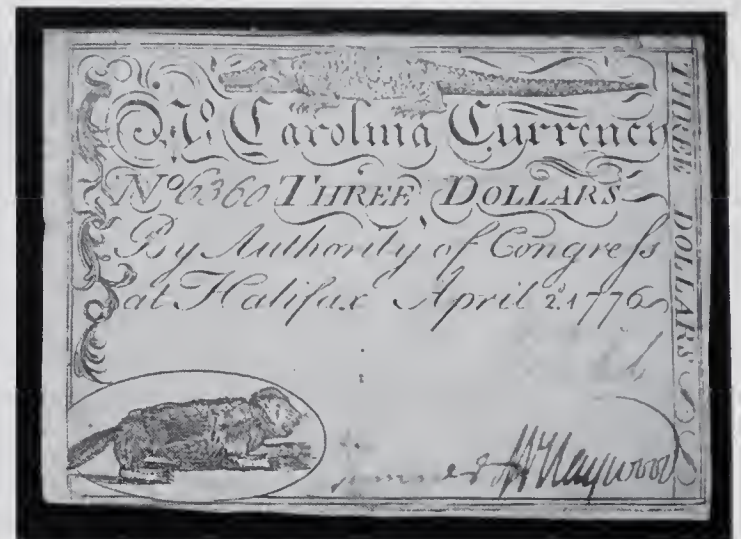 N. Carolina Currency
No 6360 THREE DOLLARS
By Authority of Congress
at Halifax April 2d. 1776
Haywood
THREE DOLLARS